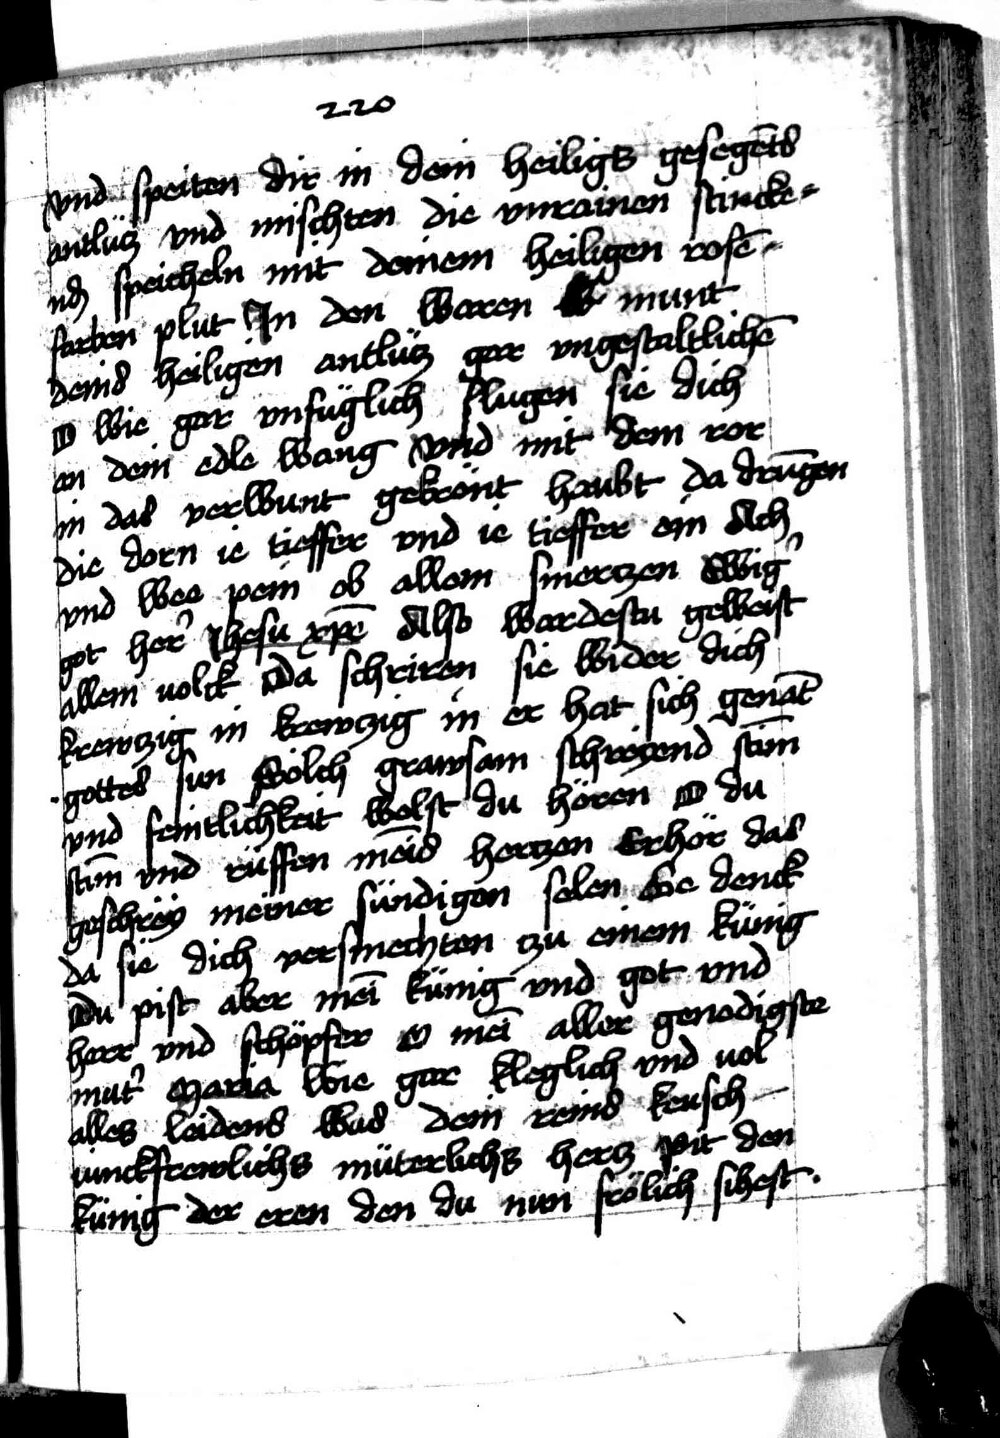 220
vnd speiten dir in dein heiligs gesegēts
antlücz vnd mischten die vnrainen stincke=
nd speicheln mit deinem heiligen rosē=
farben plut In den waren munt
deins heiligen antlücz gar vngestaltlichē
O wie gar vnfüglich slugen sie dich
an dein edle wang vnd mit dem ror
in das verwunt gekrönt haubt da drungen
die dorn ie tieffer vnd ie tieffer ein Ach
vnd wee pein ob allem smerczen Ewig'
got her' Jhesu xpē Also wardestu geweist
allem volck Da schriren sie wider dich
krewczig in krewczig in er hat sich genāt
gottes sun Sölch grawsam schreyend stim̄
vnd feintlichkeit wolst du hören O du
stim̄ vnd rüffen meīs herczen Erhör das
geschrey meiner sündigen selen Ge denck
da sie dich versmechten czu einem künig
Du pist aber meī künig vnd got vnd
herr vnd schöpfer O meī aller genedigste
mut' Maria wie gar kleglich vnd vol
alles leidens was dein reins keusch
iunckfrewlichs müterlichs hercz Pit den
künig der eren den du nun frölich sihest.